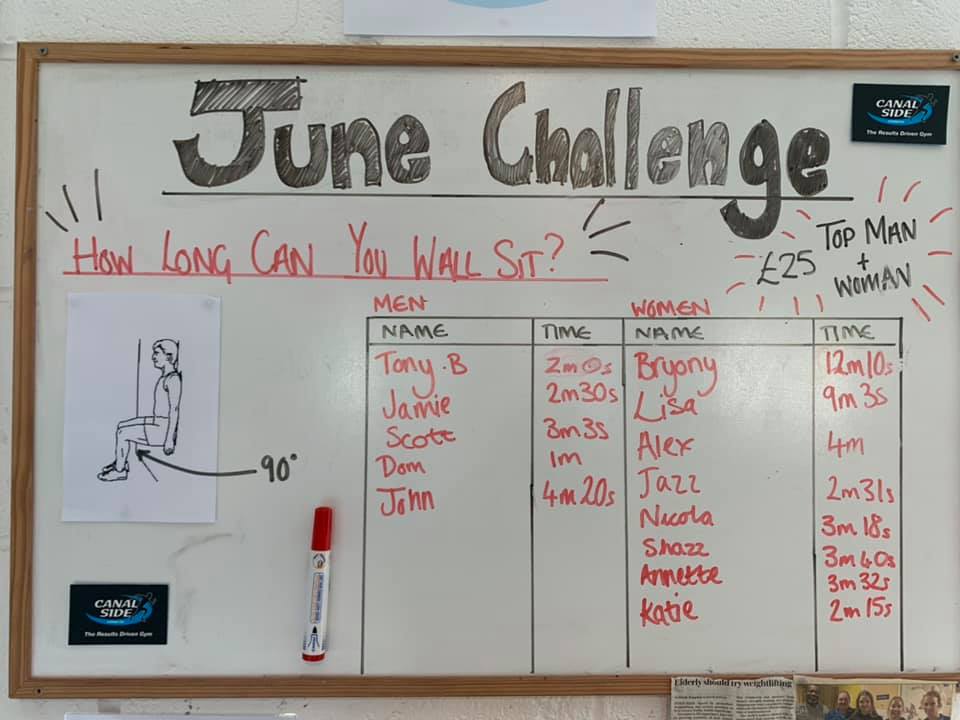 June Challenge
CANAL SIDE
The Results Driven Gym
HOW LONG CAN YOU WALL SIT?
£25 TOP MAN + WOMAN
MEN WOMEN
NAME TIME NAME TIME
Tony.B 2m 0s Bryony 12m10s
Jamie 2m30s Lisa 9m 3s
Scott 3m3s Alex 4m
Dom 1m Jazz 2m31s
John 4m20s Nicola 3m18s
Shazz 3m40s
Annette 3m32s
Katie 2m15s
90°
CANAL SIDE
The Results Driven Gym
Elderly should try weightlifting